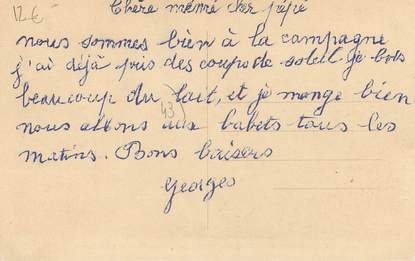 12 €
Chère mémé cher pépé
nous sommes bien à la campagne
j'ai déjà pris des coups de soleil je bois
beaucoup du lait, et je mange bien
43
nous allons aux babets tous les
matins. Bons baisers
Georges